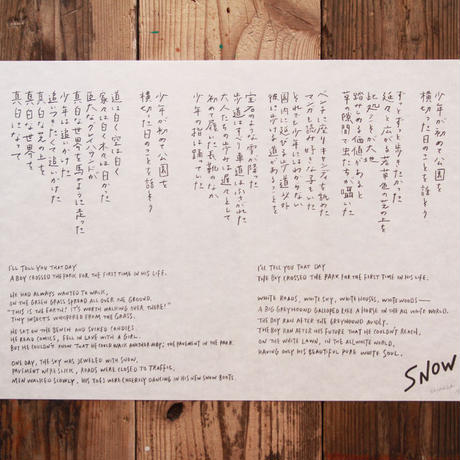 少年が初めて公園を
横切った日のことを話そう
ずっとずっと歩きたかった
延々と広がる若草色の芝の上を
此処こそが大地
踏みしめる価値があると
草の隙間で虫たちが囁いた
ベンチに座りキャンディを舐めた
マンガも読み好きな子もいた
けれども少年にはわからない
園内に延びる歩道以外
彼に歩ける道があることを
宝石のような雪が降った
歩道はすべり車道はふさがれた
大人たちの歩みは遅々として
初めて履いた長靴のなか
少年の指は踊っていた
少年が初めて公園を
横切った日のことを話そう
道は白く空は白く
家々は白く木々は白かった
巨大なグレイハウンドが
真白な世界を馬のように走った
少年は追いかけた
追いつけなくて追いかけた
真白な芝の上を
真白な世界で
真白になって
I'LL TELL YOU THAT DAY
A BOY CROSSED THE PARK FOR THE FIRST TIME IN HIS LIFE.
HE HAD ALWAYS WANTED TO WALK,
ON THE GREEN GRASS SPREAD ALL OVER THE GROUND.
"THIS IS THE EARTH! IT'S WORTH WALKING OVER THERE!"
TINY INSECTS WHISPERED FROM THE GRASS.
HE SAT ON THE BENCH AND SUCKED CANDIES.
HE READ COMICS, FELL IN LOVE WITH A GIRL.
BUT HE COULDN'T KNOW THAT HE COULD WALK ANOTHER WAY; THE PAVEMENT IN THE PARK.
ONE DAY, THE SKY WAS JEWELED WITH SNOW,
PAVEMENT WERE SLICK, ROADS WERE CLOSED TO TRAFFIC,
MEN WALKED SLOWLY. HIS TOES WERE CHEERILY DANCING IN HIS NEW SNOW BOOTS.
I'LL TELL YOU THAT DAY
THE BOY CROSSED THE PARK FOR THE FIRST TIME IN HIS LIFE.
WHITE ROADS, WHITE SKY, WHITE HOUSES, WHITE WOODS—
A BIG GREYHOUND GALLOPED LIKE A HORSE IN THE ALL WHITE WORLD.
THE BOY RAN AFTER THE GREYHOUND AVIDLY.
THE BOY RAN AFTER HIS FUTURE THAT HE COULDN'T REACH,
ON THE WHITE LAWN, IN THE ALLWHITE WORLD,
HAVING ONLY HIS BEAUTIFUL PURE WHITE SOUL.
SNOW